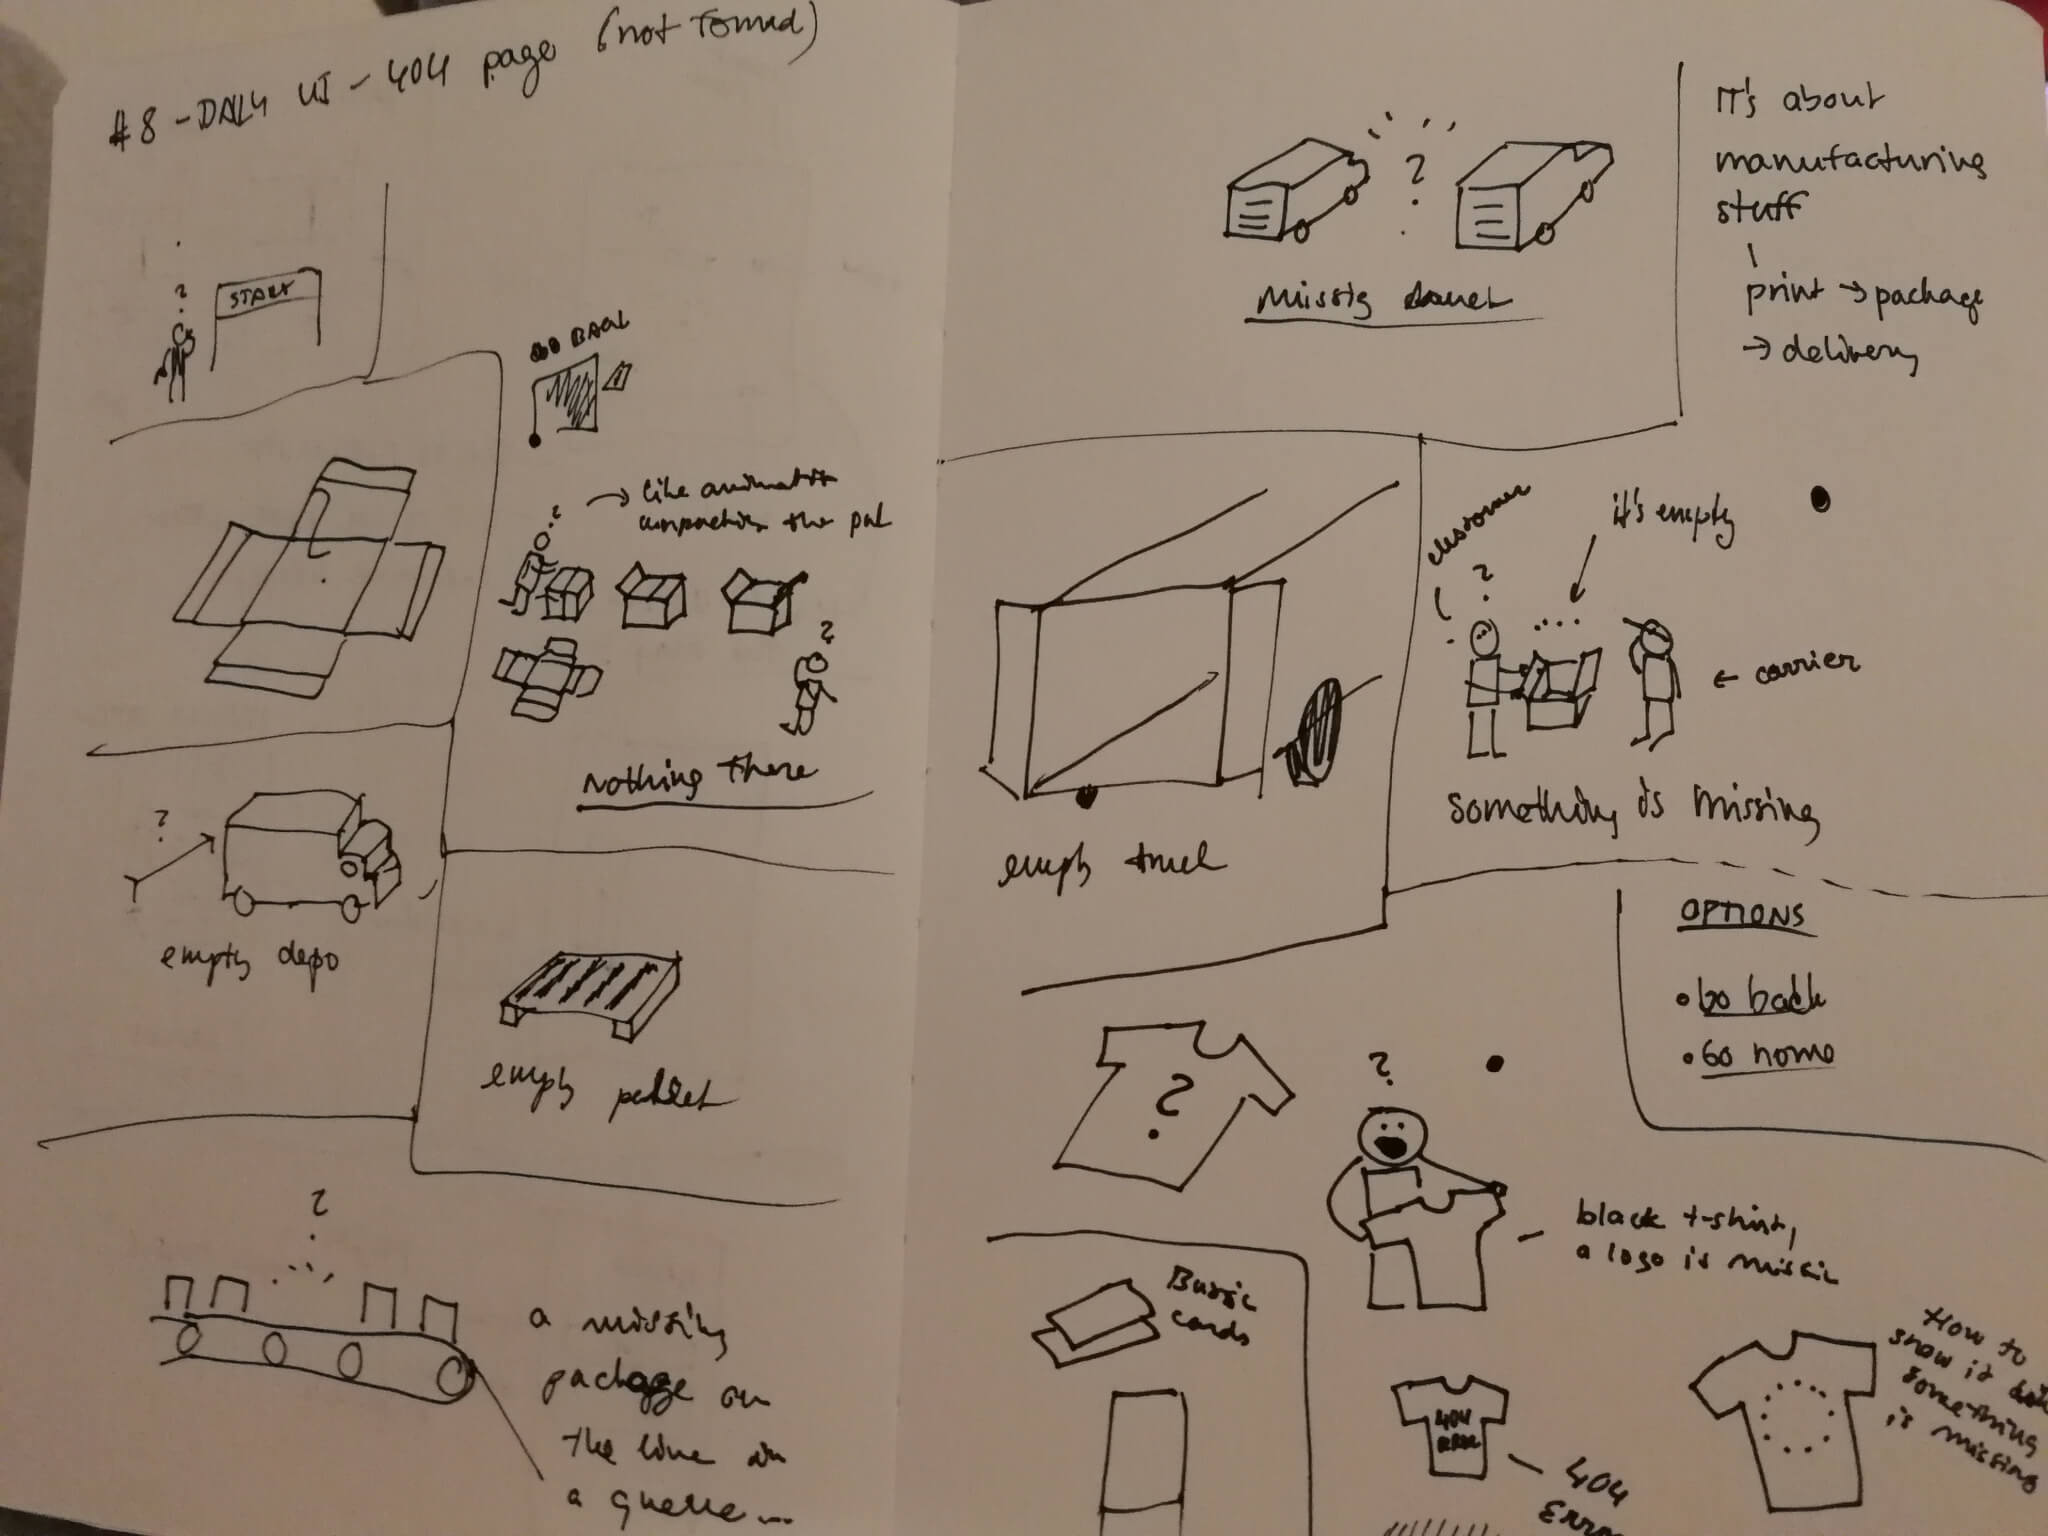 #8 - DAILY UI - 404 page (not found)
?
START
GO BACK
?
like animation
unpacking the
?
nothing there
?
empty depo
empty pallet
?
a missing
package on
the line in
a queue...
?
missig
IT's about
manufacturing
stuff
print → package
→ delivery
empty truck
customer
?
it's empty
← carrier
something is missing
OPTIONS
• Go back
• Go home
?
?
black t-shirt,
a logo is missin
cards
404
404
Erro
How to
show it
something
is missing